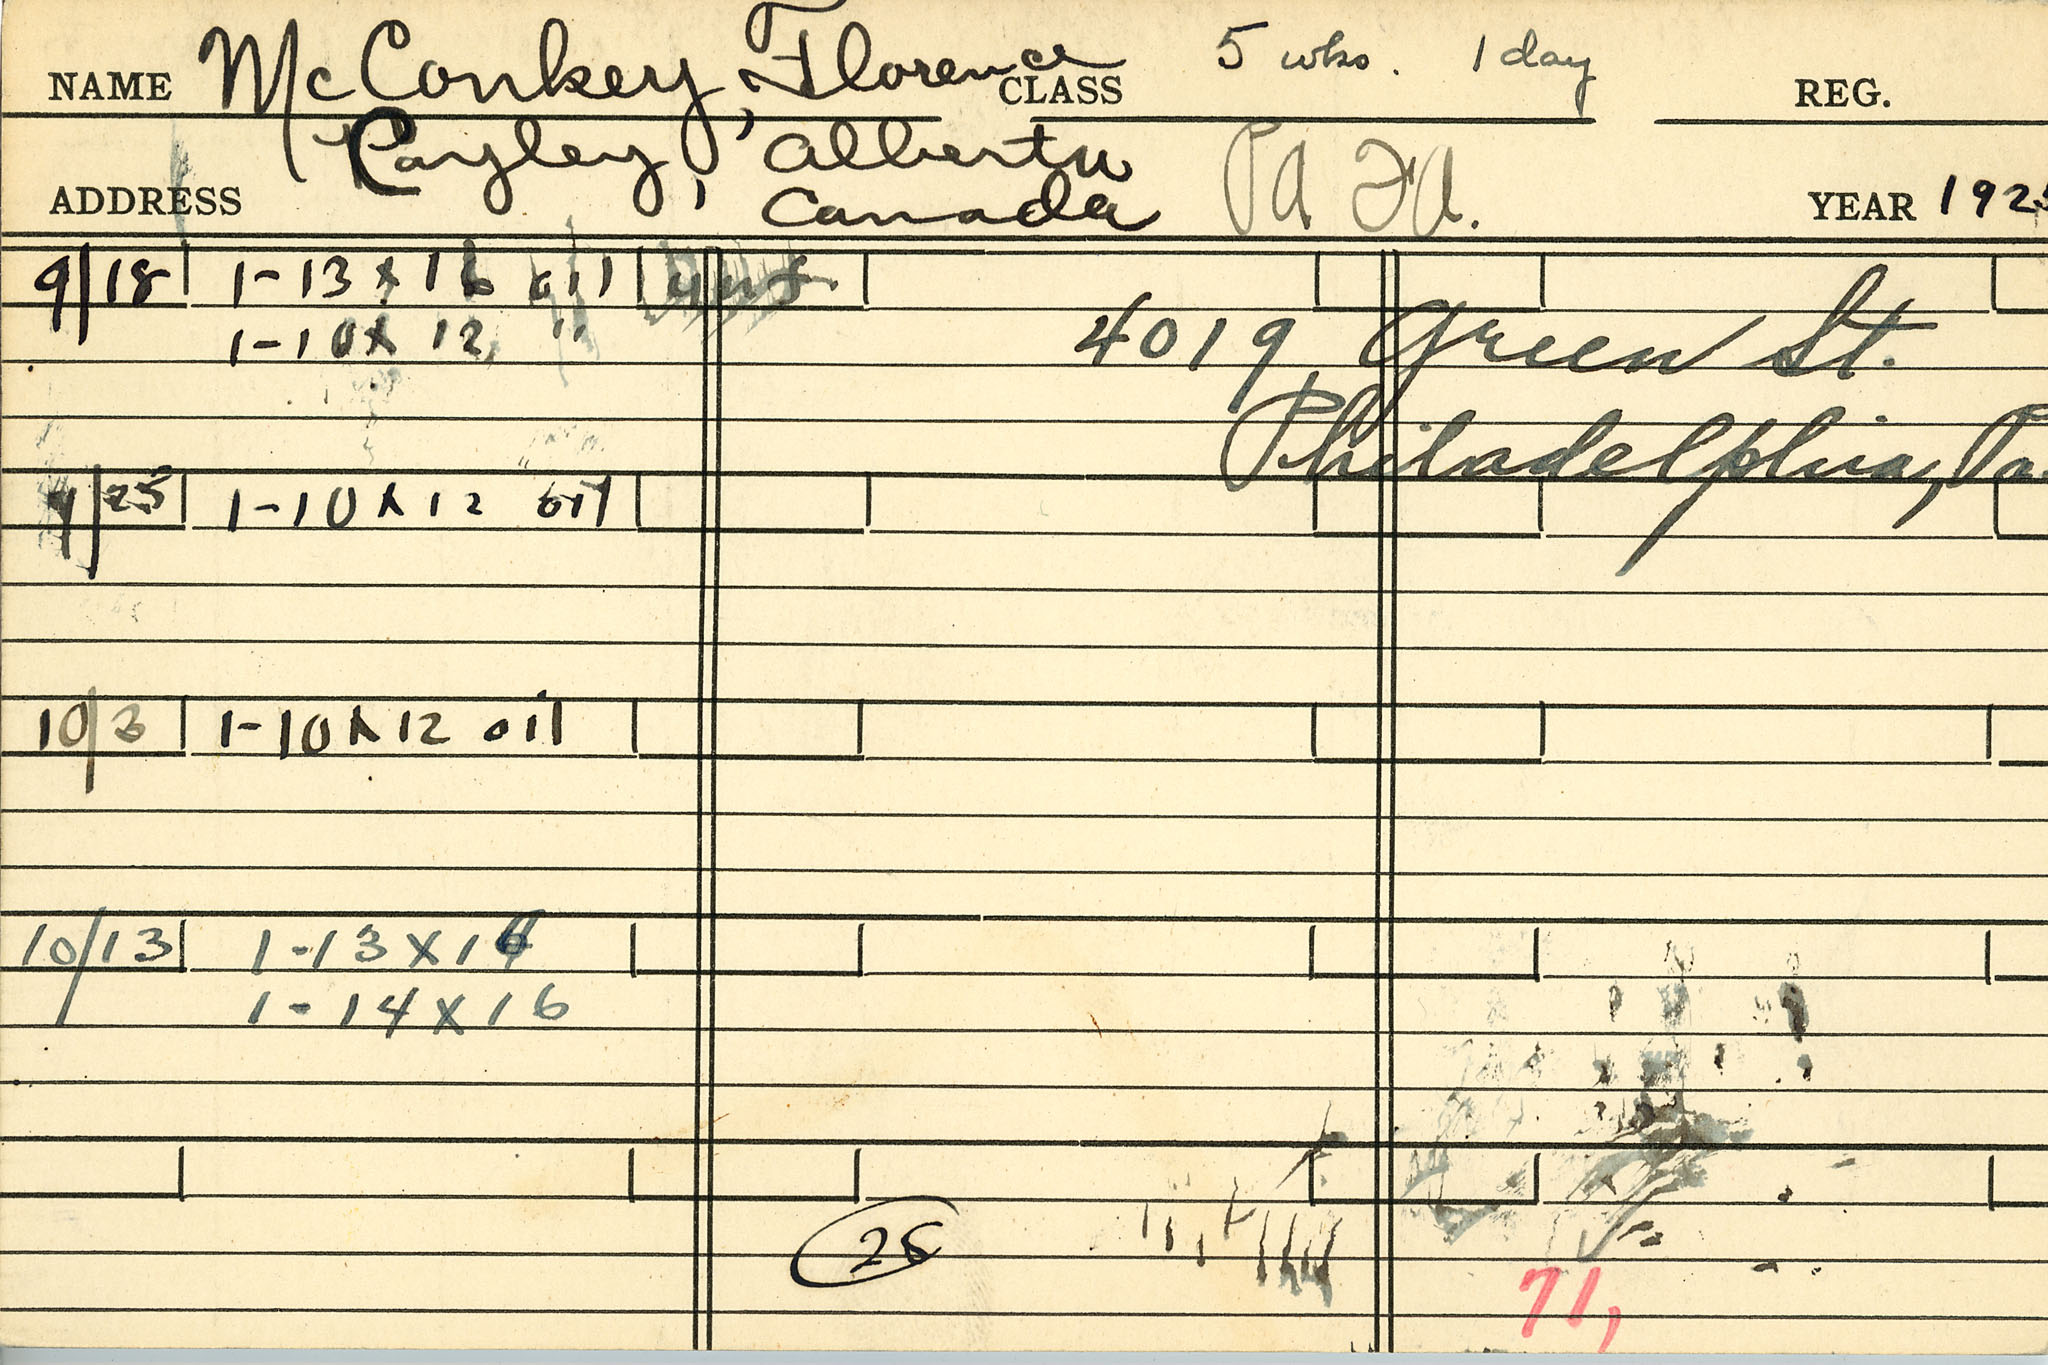 NAME McConkey, Florence CLASS 5 wks. 1 day REG.
ADDRESS Cayley, Alberta Canada PA FA. YEAR 1925
9/18 1-13 x 16 oil
1-10 x 12 "
4019 Green St.
Philadelphia, Pa.
9/25 1-10 x 12 oil
10/3 1-10 x 12 oil
10/13 1-13 x 16
1-14 x 16
25
71,